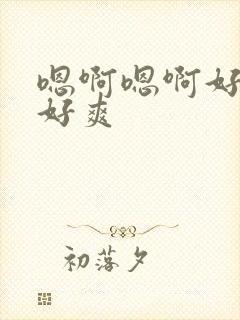 嗯啊嗯啊好
好爽
初落夕